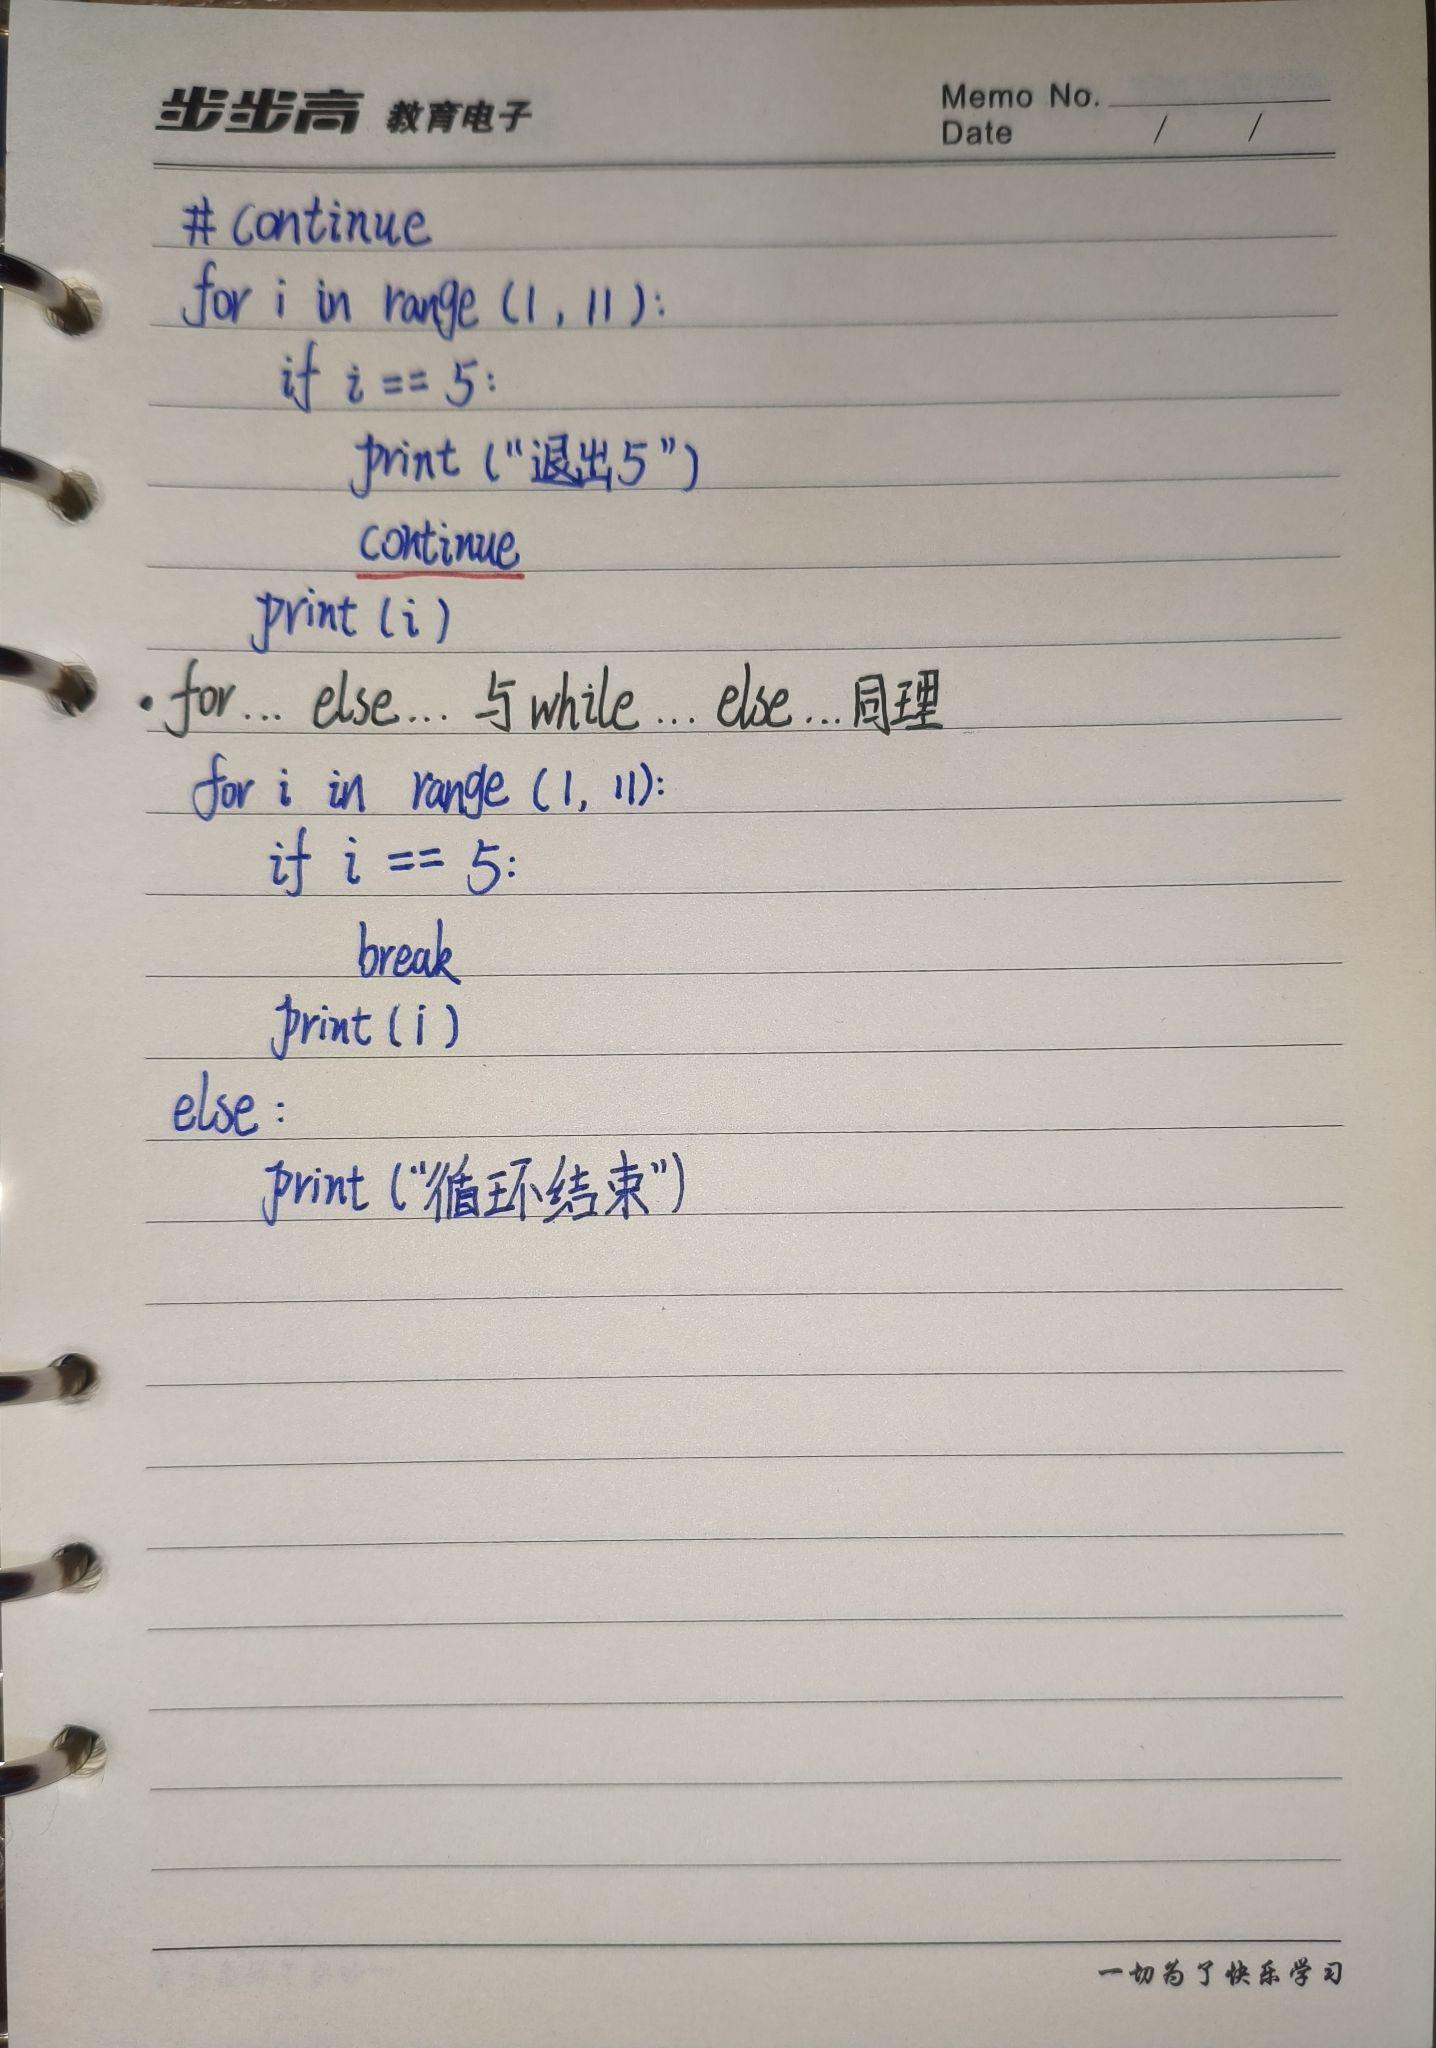 步步高 教育电子
Memo No.
Date / /
# continue
for i in range (1, 11):
if i == 5:
print (“退出5”)
continue
print (i)
• for... else... 与while... else...同理
for i in range (1, 11):
if i == 5:
break
print (i)
else:
print (“循环结束”)
一切为了快乐学习